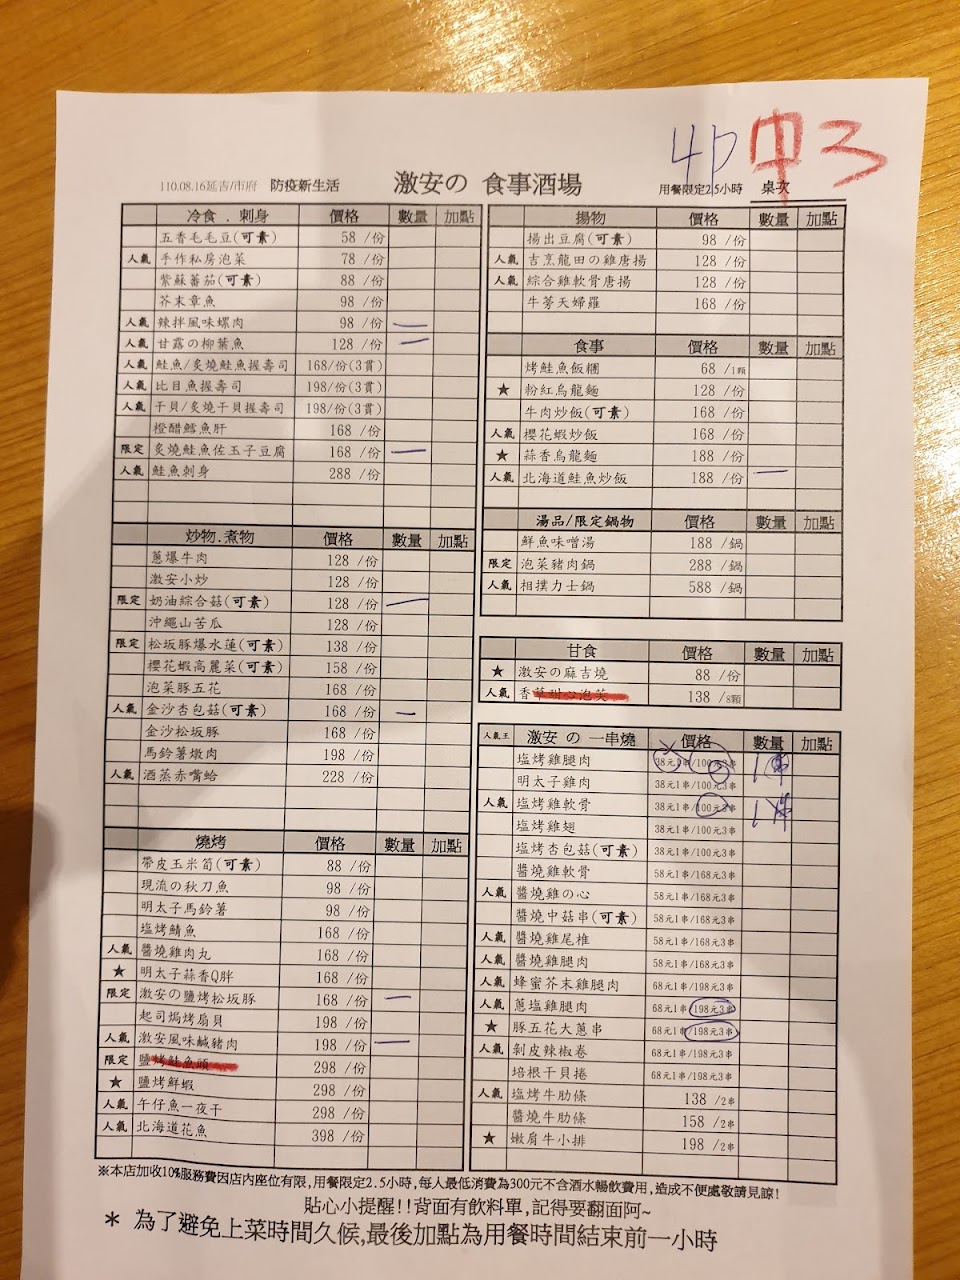 4P 中3
110.08.16延吉/市府 防疫新生活 激安の 食事酒場 用餐限定2.5小時 桌次
冷食 . 刺身 價格 數量 加點
五香毛毛豆(可素) 58 /份
人氣 手作私房泡菜 78 /份
紫蘇蕃茄(可素) 88 /份
芥末章魚 98 /份
人氣 辣拌風味螺肉 98 /份 一
人氣 甘露の柳葉魚 128 /份 一
人氣 鮭魚/炙燒鮭魚握壽司 168/份(3貫)
人氣 比目魚握壽司 198/份(3貫)
人氣 干貝/炙燒干貝握壽司 198/份(3貫)
橙醋鱈魚肝 168 /份
限定 炙燒鮭魚佐玉子豆腐 168 /份 一
人氣 鮭魚刺身 288 /份
炒物.煮物 價格 數量 加點
蔥爆牛肉 128 /份
激安小炒 128 /份
限定 奶油綜合菇(可素) 128 /份 一
沖繩山苦瓜 128 /份
限定 松坂豚爆水蓮(可素) 138 /份
櫻花蝦高麗菜(可素) 158 /份
泡菜豚五花 168 /份
人氣 金沙杏包菇(可素) 168 /份 一
金沙松坂豚 168 /份
馬鈴薯燉肉 198 /份
人氣 酒蒸赤嘴蛤 228 /份
燒烤 價格 數量 加點
帶皮玉米筍(可素) 88 /份
現流の秋刀魚 98 /份
明太子馬鈴薯 98 /份
塩烤鯖魚 168 /份
人氣 醬燒雞肉丸 168 /份
★ 明太子蒜香Q胖 168 /份
限定 激安の鹽烤松坂豚 168 /份 一
起司焗烤扇貝 198 /份
人氣 激安風味鹹豬肉 198 /份 一
限定 鹽烤鮭魚頭 298 /份
★ 鹽烤鮮蝦 298 /份
人氣 午仔魚一夜干 298 /份
人氣 北海道花魚 398 /份
揚物 價格 數量 加點
揚出豆腐(可素) 98 /份
人氣 吉烹龍田の雞唐揚 128 /份
人氣 綜合雞軟骨唐揚 128 /份
牛蒡天婦羅 168 /份
食事 價格 數量 加點
烤鮭魚飯糰 68 /1顆
★ 粉紅烏龍麵 128 /份
牛肉炒飯(可素) 168 /份
人氣 櫻花蝦炒飯 168 /份
★ 蒜香烏龍麵 188 /份
人氣 北海道鮭魚炒飯 188 /份 一
湯品/限定鍋物 價格 數量 加點
鮮魚味噌湯 188 /鍋
限定 泡菜豬肉鍋 288 /鍋
人氣 相撲力士鍋 588 /鍋
甘食 價格 數量 加點
★ 激安の麻吉燒 88 /份
人氣 香草甜心泡芙 138 /8顆
人氣王 激安 の 一串燒 價格 數量 加點
塩烤雞腿肉 38元1串/100元3串 1串
明太子雞肉 38元1串/100元3串
人氣 塩烤雞軟骨 38元1串/100元3串 1串
塩烤雞翅 38元1串/100元3串
塩烤杏包菇(可素) 38元1串/100元3串
醬燒雞軟骨 58元1串/168元3串
人氣 醬燒雞の心 58元1串/168元3串
醬燒中菇串(可素) 58元1串/168元3串
人氣 醬燒雞尾椎 58元1串/168元3串
人氣 醬燒雞腿肉 58元1串/168元3串
人氣 蜂蜜芥末雞腿肉 68元1串/198元3串
人氣 蔥塩雞腿肉 68元1串/198元3串
★ 豚五花大蔥串 68元1串/198元3串
人氣 剝皮辣椒卷 68元1串/198元3串
培根干貝捲 68元1串/198元3串
人氣 塩烤牛肋條 138 /2串
醬燒牛肋條 158 /2串
★ 嫩肩牛小排 198 /2串
※本店加收10%服務費因店內座位有限,用餐限定2.5小時,每人最低消費為300元不含酒水暢飲費用,造成不便處敬請見諒!
貼心小提醒!!背面有飲料單,記得要翻面阿~
* 為了避免上菜時間久候,最後加點為用餐時間結束前一小時